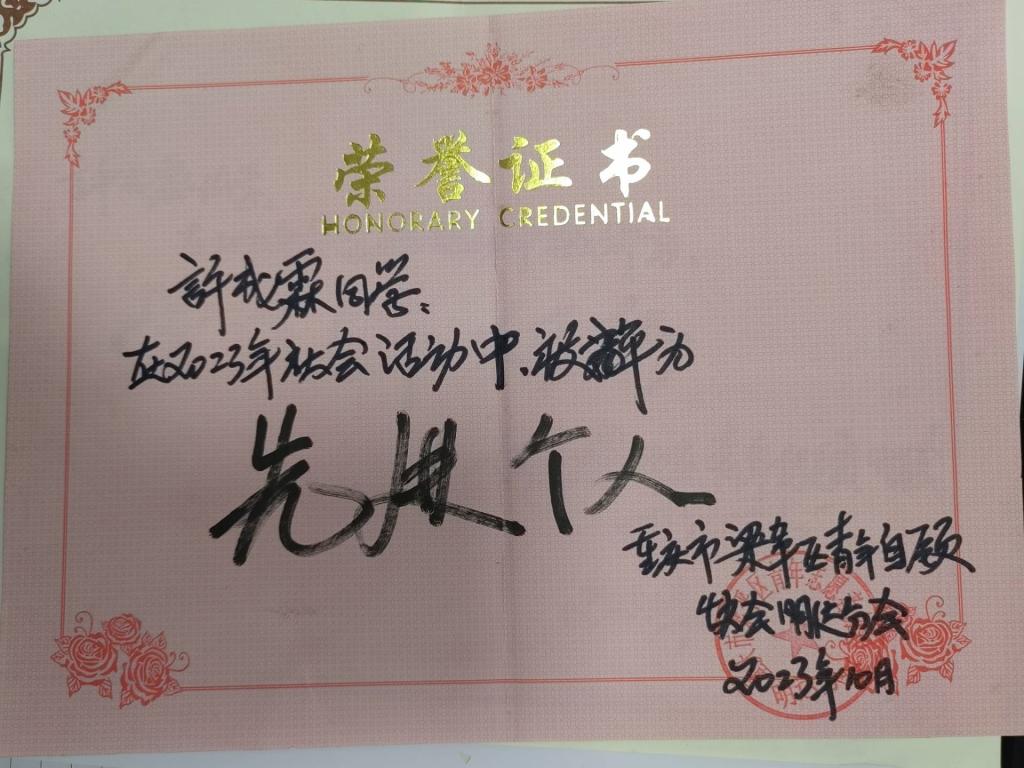 荣誉证书
HONORARY CREDENTIAL
許成霖同学:
在2023年社会活动中,被评为
先进个人
重庆市梁平区青年自愿
明达分会
2023年10月